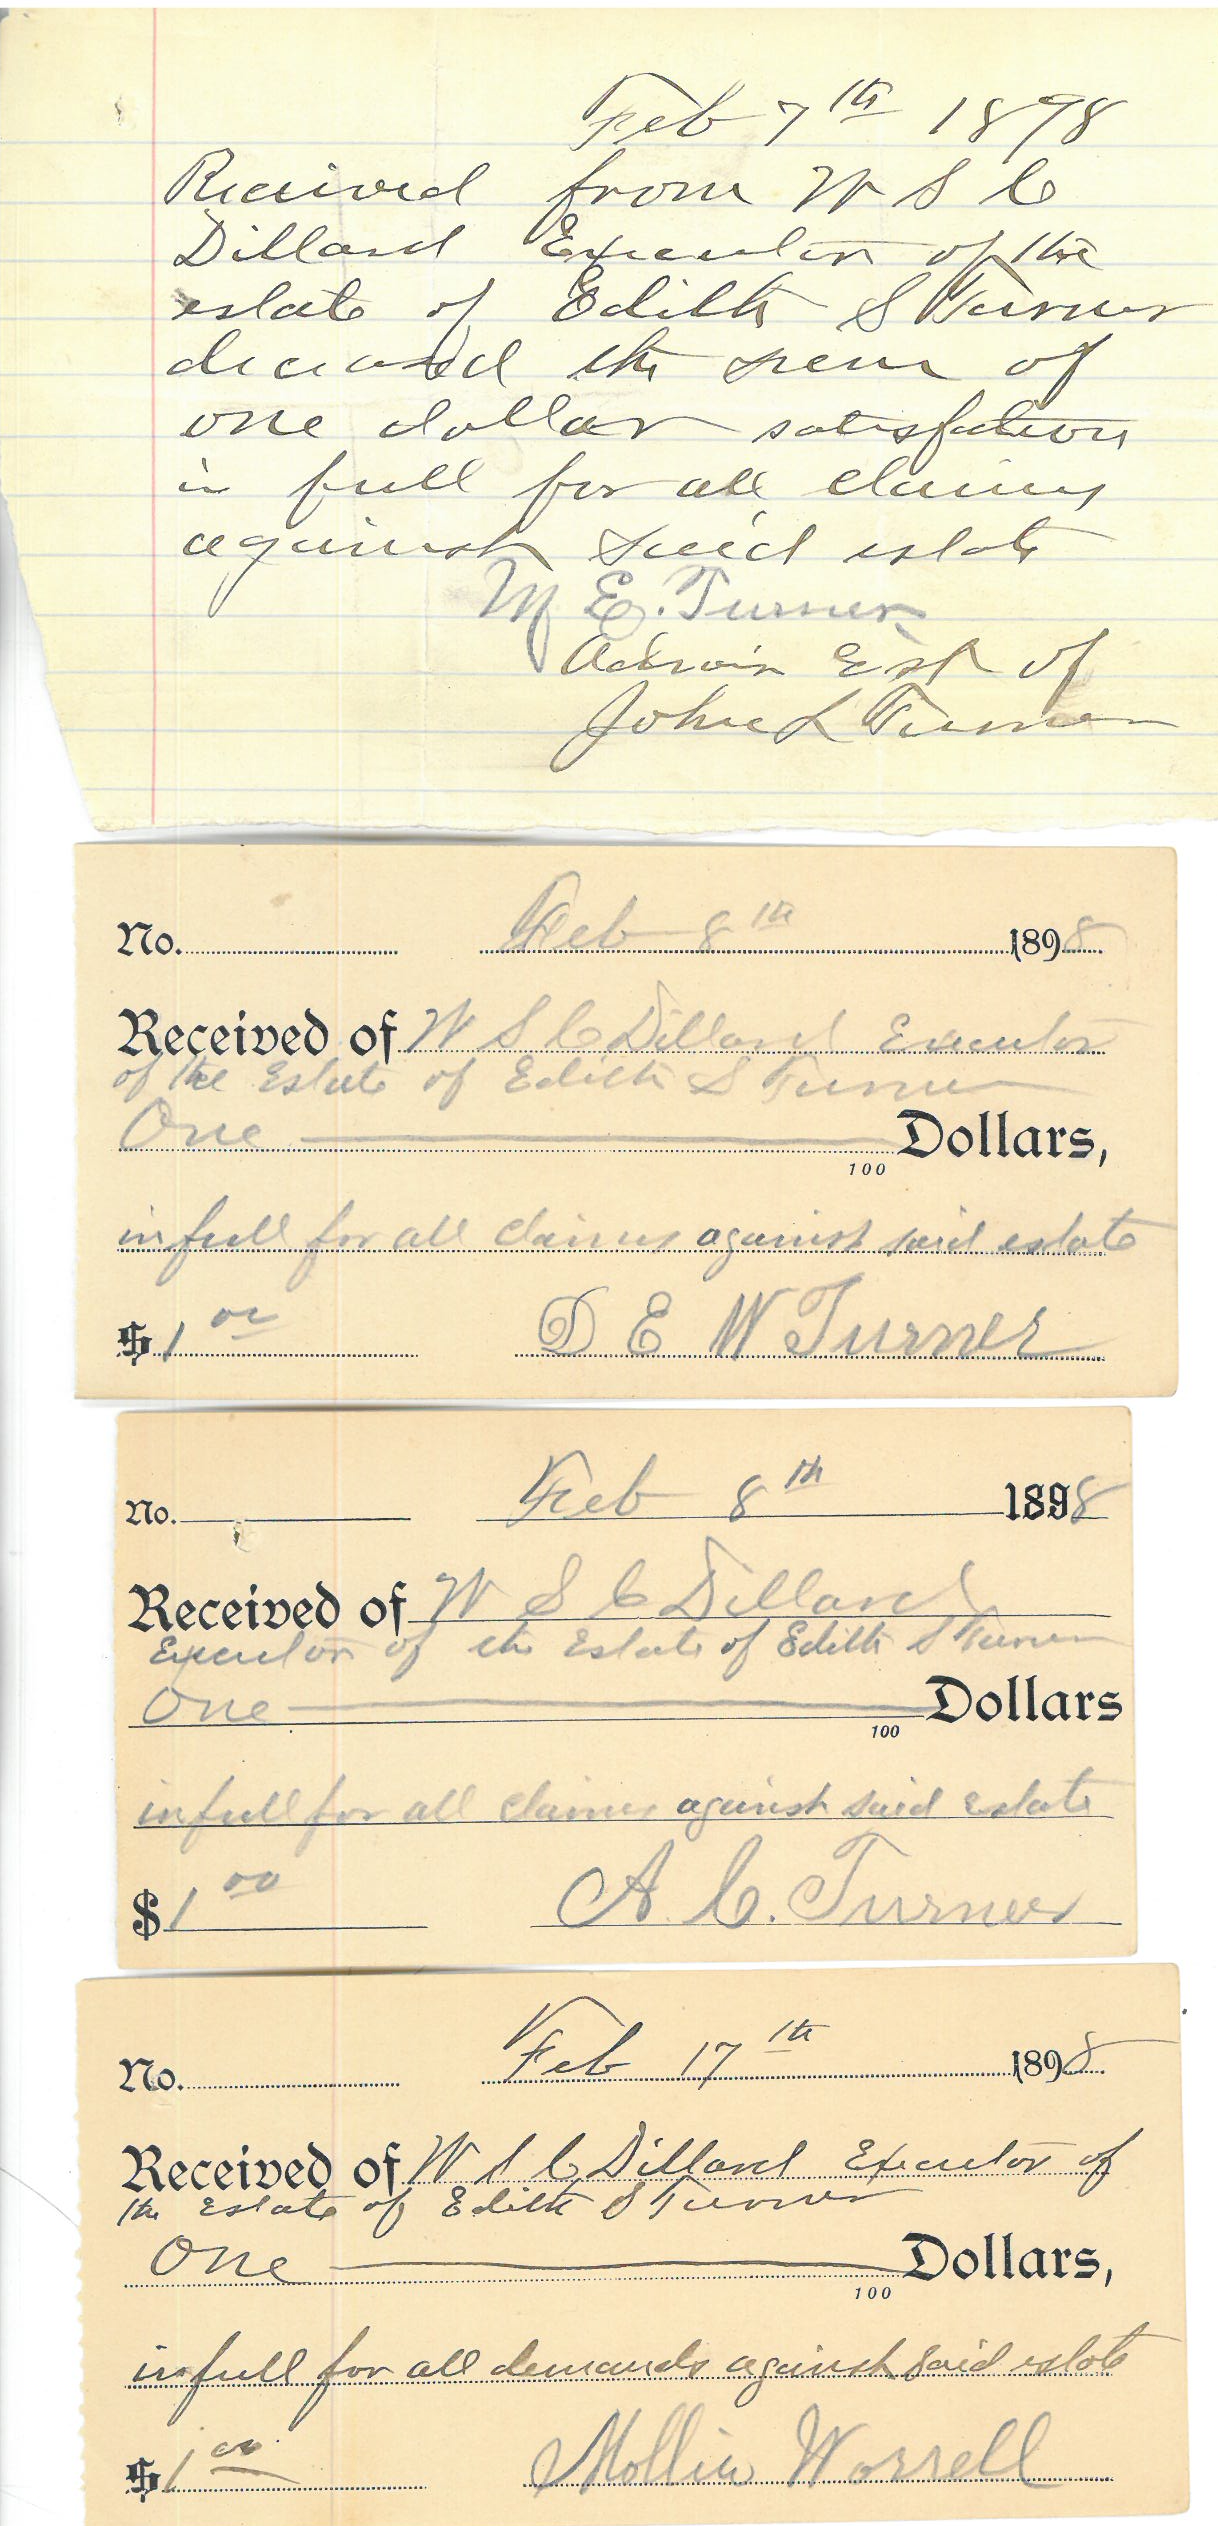 Feb 7th 1898
Received from W S C
Dillard Executor of the
estate of Edith S Turner
deceased the sum of
one dollar satisfaction
in full for all claims
against said estate
M E. Turner
Admin Est of
John L Turner
No. Feb 8th 1898
Received of W S C Dillard Executor
of the Estate of Edith S Turner
One Dollars,
100
in full for all claims against said estate
$ 1 00 D E W Turner
No. Feb 8th 1898
Received of W S C Dillard
Executor of the Estate of Edith S Turner
One Dollars
100
in full for all claims against said estate
$ 1 00 A. C. Turner
No. Feb 17th 1898
Received of W S C Dillard Executor of
the Estate of Edith S Turner
One Dollars,
100
in full for all demands against said estate
$ 1 00 Mollie Worrell